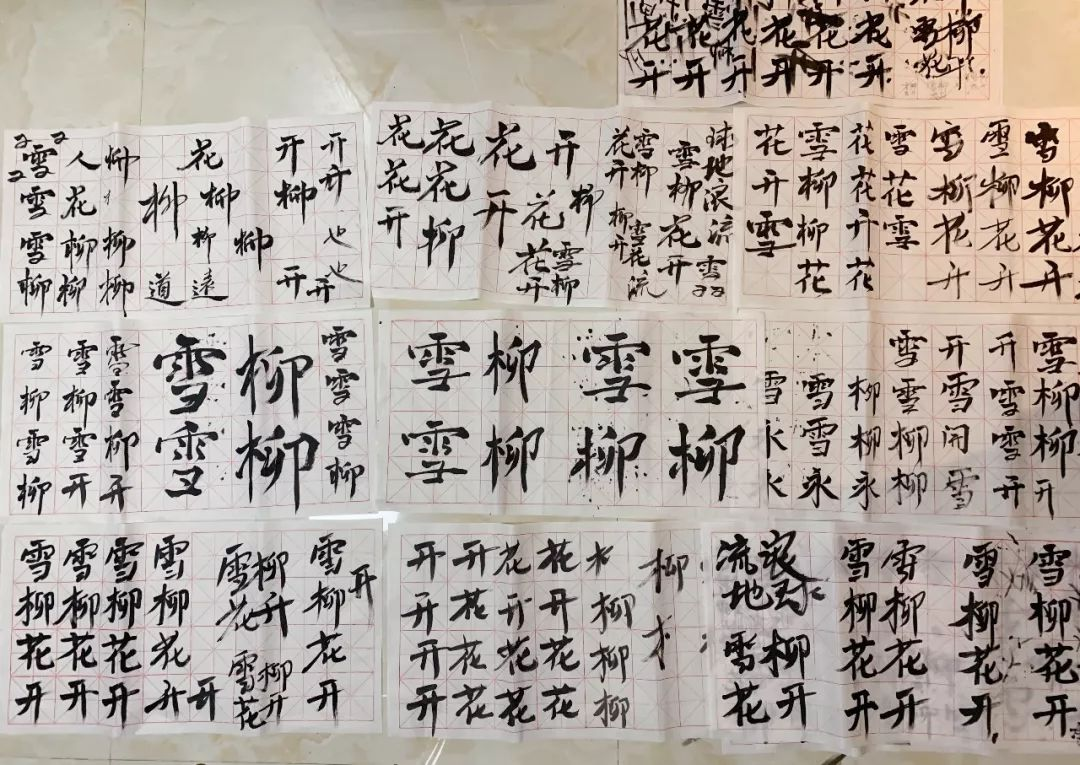 花开
花开
花开
花开
花开
花开
柳
雪雪雪柳
人花柳柳
柳柳柳
柳道
花柳遠
柳
柳
开柳开
开开也也
开
花花开
花花柳
花开
花花开
开
雪柳
柳
花开柳开
雪柳雪花流
雪柳花开
球地浪流雪
花开雪
雪柳柳花
花花开花
雪花雪
雪柳花开
雪柳花开
雪柳花开
雪柳雪柳
雪柳雪开
雪雪柳开
雪雪
柳柳
雪雪雪柳
雪雪
柳柳
雪柳
雪柳
雪永永
雪雪永
柳柳永
雪雪柳柳
开雪开雪
开雪雪开
雪柳柳开
雪柳花开
雪柳花开
雪柳花开
雪柳花开
开
雪花
柳开
雪花
柳开
雪柳花开
开
开开开开
开花花花
花开花花
花开花花
木柳柳柳
柳木
流地雪花
浪球柳开
雪柳花开
雪柳花开
雪柳花开
雪柳花开